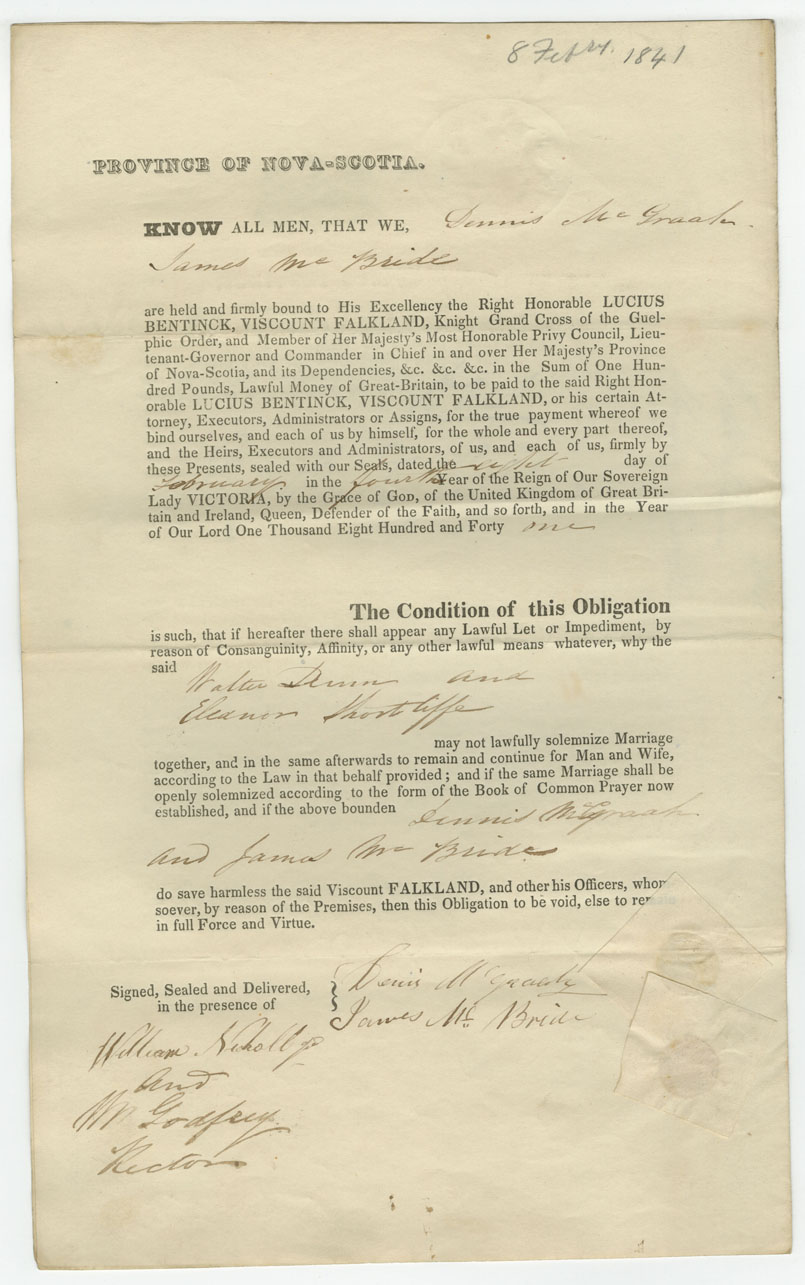 8 Febry. 1841
PROVINCE OF NOVA-SCOTIA.
KNOW ALL MEN, THAT WE, Dennis Mc Graah
James Mc Bride
are held and firmly bound to His Excellency the Right Honorable LUCIUS
BENTINCK, VISCOUNT FALKLAND, Knight Grand Cross of the Guel-
phic Order, and Member of Her Majesty's Most Honorable Privy Council, Lieu-
tenant-Governor and Commander in Chief in and over Her Majesty's Province
of Nova-Scotia, and its Dependencies, &c. &c. &c. in the Sum of One Hun-
dred Pounds, Lawful Money of Great-Britain, to be paid to the said Right Hon-
orable LUCIUS BENTINCK, VISCOUNT FALKLAND, or his certain At-
torney, Executors, Administrators or Assigns, for the true payment whereof we
bind ourselves, and each of us by himself, for the whole and every part thereof,
and the Heirs, Executors and Administrators, of us, and each of us, firmly by
these Presents, sealed with our Seals, dated the eight day of
February in the fourth Year of the Reign of Our Sovereign
Lady VICTORIA, by the Grace of GOD, of the United Kingdom of Great Bri-
tain and Ireland, Queen, Defender of the Faith, and so forth, and in the Year
of Our Lord One Thousand Eight Hundred and Forty one
The Condition of this Obligation
is such, that if hereafter there shall appear any Lawful Let or Impediment, by
reason of Consanguinity, Affinity, or any other lawful means whatever, why the
said
Walter Dunn and
Eleanor Shortliffe
may not lawfully solemnize Marriage
together, and in the same afterwards to remain and continue for Man and Wife,
according to the Law in that behalf provided; and if the same Marriage shall be
openly solemnized according to the form of the Book of Common Prayer now
established, and if the above bounden Dennis McGraah
and James Mc Bride
do save harmless the said Viscount FALKLAND, and other his Officers, whom
soever, by reason of the Premises, then this Obligation to be void, else to re
in full Force and Virtue.
Signed, Sealed and Delivered,
in the presence of
Denis McGraah
James Mc. Bride
William Nicholl
And
Wm Godfrey
Rector